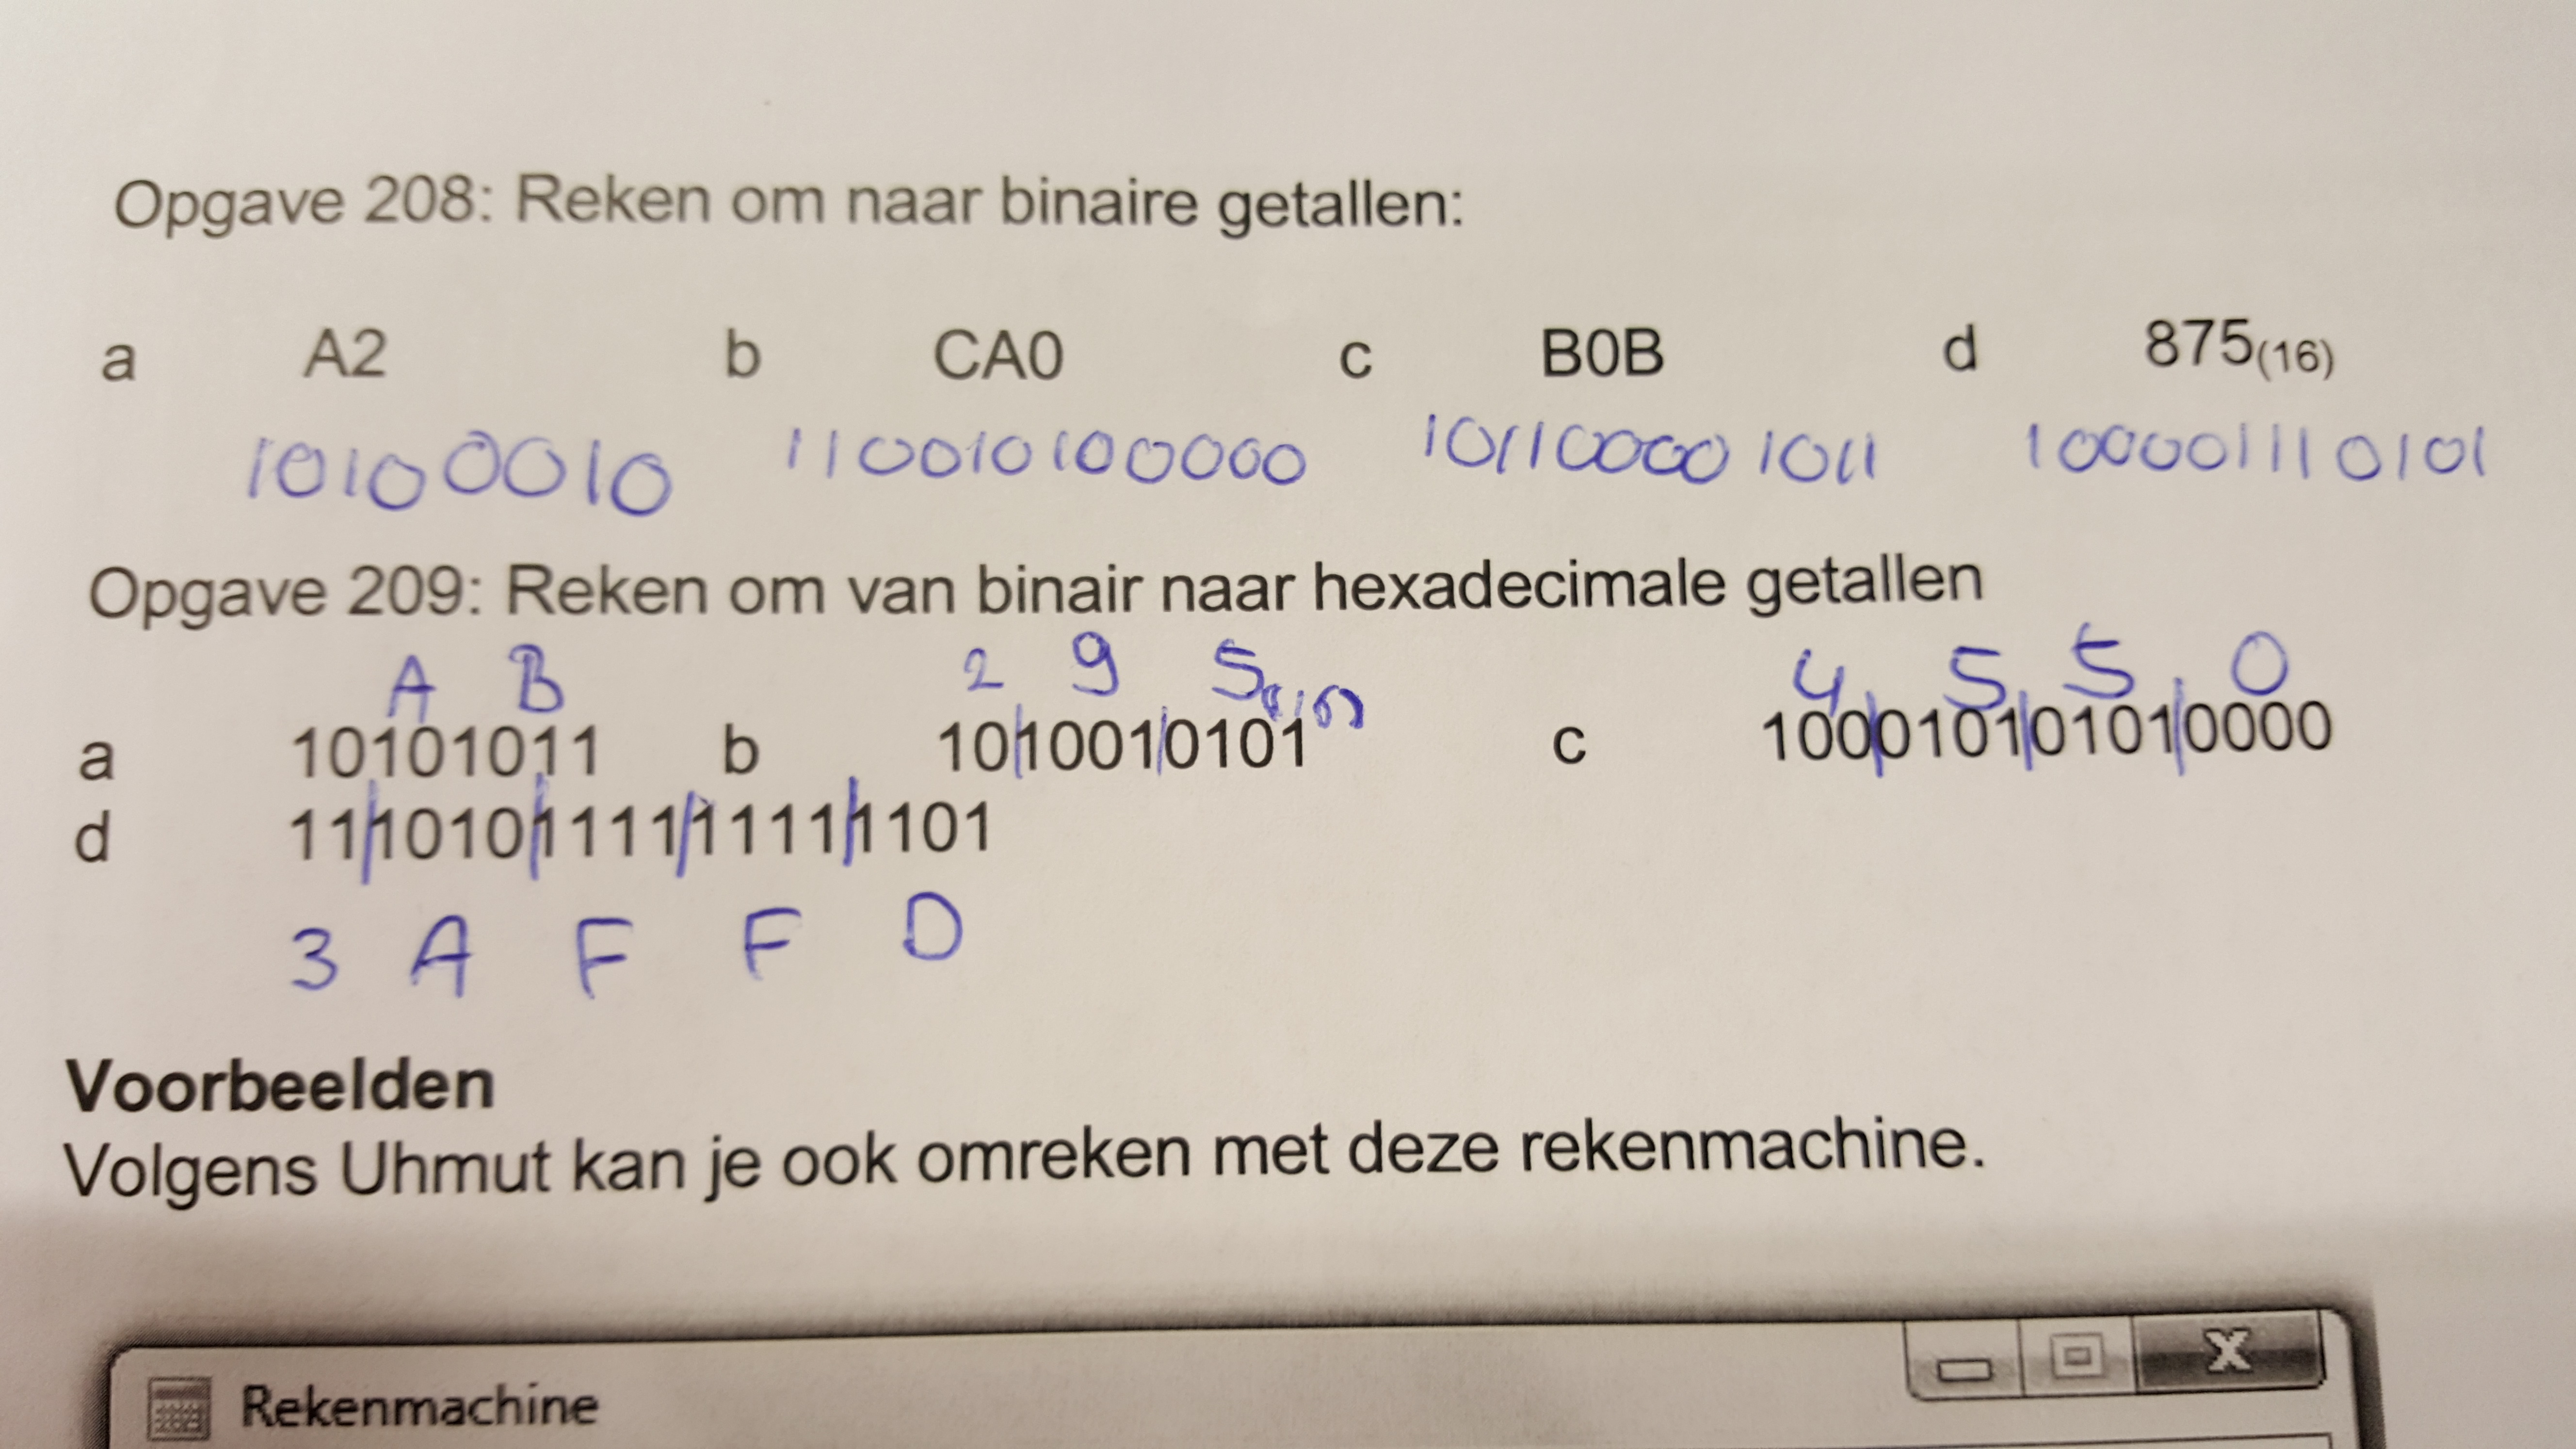 Opgave 208: Reken om naar binaire getallen:
a A2 b CA0 c B0B d 875(16)
10100010 110010100000 101100001011 100001110101
Opgave 209: Reken om van binair naar hexadecimale getallen
A B 2 9 5 4 5 5 0
a 10101011 b 1010010101 c 100010101010000
d 111010111111111101
3 A F F D
Voorbeelden
Volgens Uhmut kan je ook omreken met deze rekenmachine.
Rekenmachine